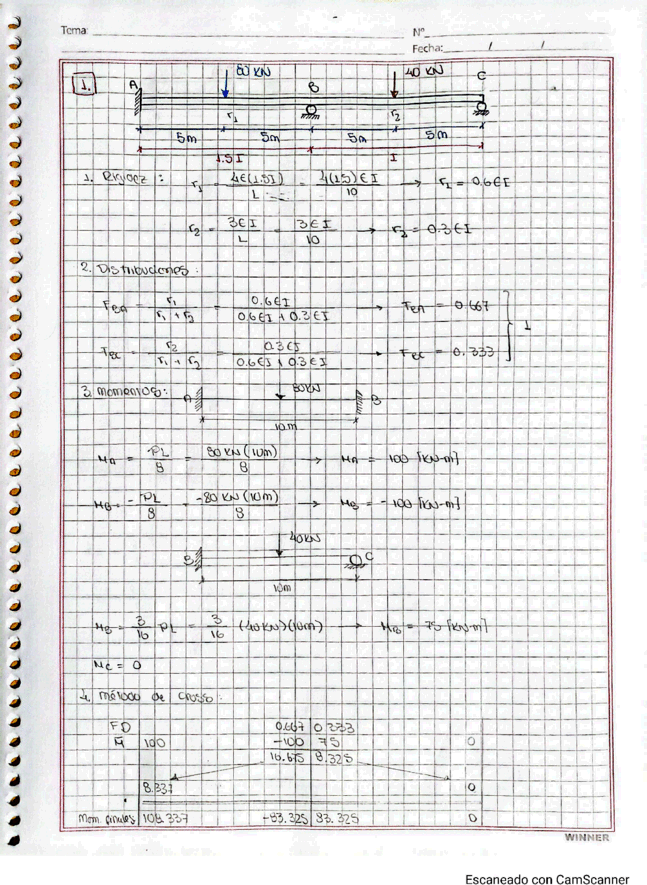 Tema:
Nº
Fecha: / /
1.
80 KN 40 KN
A B C
r1 r2
5m 5m 5m 5m
1.5I I
1. Rigidez: r1 = 4E(1.5I) / L = 4(1.5)EI / 10 → r1 = 0.6EI
r2 = 3EI / L = 3EI / 10 → r2 = 0.3EI
2. Distribuciones:
FBA = r1 / r1 + r2 = 0.6EI / 0.6EI + 0.3EI → FBA = 0.667
1
FBC = r2 / r1 + r2 = 0.3EI / 0.6EI + 0.3EI → FBC = 0.333
3. Momentos:
80KN
A B
10m
MA = PL / 8 = 80 KN (10m) / 8 → MA = 100 [KN-m]
MB = -PL / 8 = -80 KN (10m) / 8 → MB = -100 [KN-m]
40KN
B C
10m
MB = 3 / 16 PL = 3 / 16 (40KN)(10m) → MB = 75 [KN-m]
MC = 0
4. Método de Cross:
FD 0.667 0.333
M 100 -100 75 0
16.675 8.325
8.337 0
Mom. finales 108.337 -83.325 83.325 0
WINNER
Escaneado con CamScanner